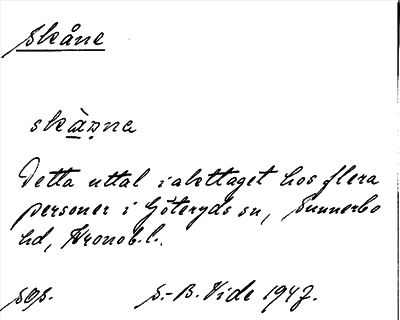 Skåne
skàṇna
Detta uttal iakttaget hos flera
personer i Göteryds sn, Sunnerbo
hd, Kronob.l.
sgs. S.-B. Vide 1947.